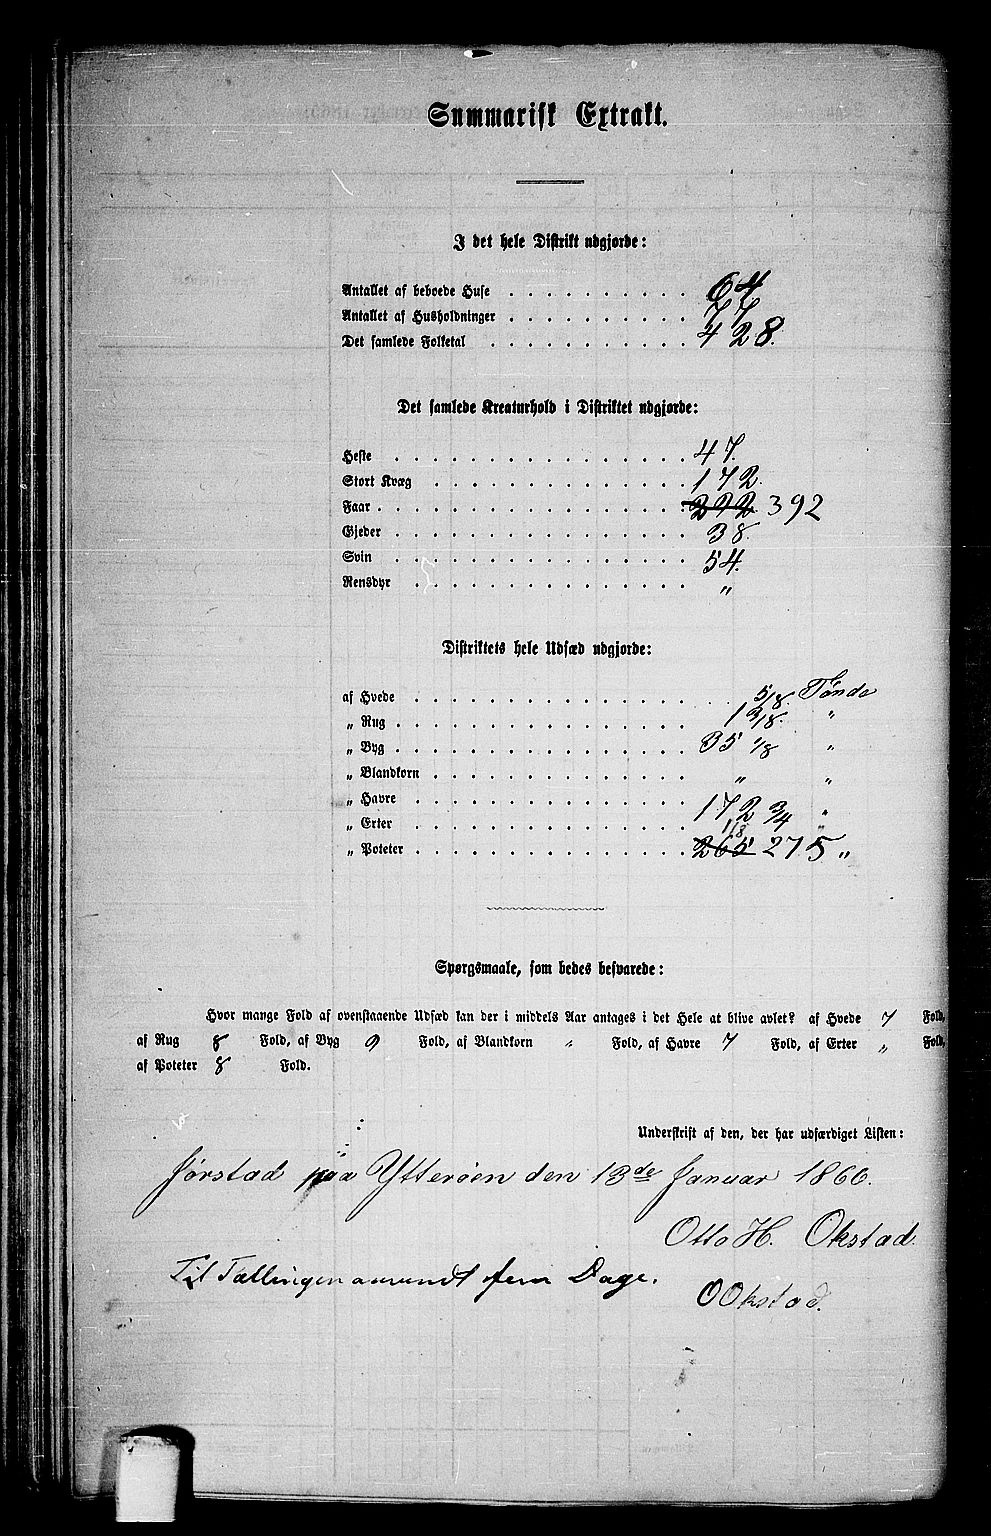 Summarisk Extrakt.
I det hele Distrikt udgjorde:
Antallet af beboede Huse . . . . . . . . 64
Antallet af Husholdninger . . . . . . . . 77
Det samlede Folketal . . . . . . . . 428.
Det samlede Kreaturhold i Distriktet udgjorde:
Heste . . . . . . . . 47.
Stort Kvæg . . . . . . . . 172.
Faar . . . . . . . . 392
Gjeder . . . . . . . . 38.
Svin . . . . . . . . 54.
Rensdyr . . . . . . . . "
Distriktets hele Udsæd udgjorde:
af Hvede . . . . . . . . 5/8. Tønde
„ Rug . . . . . . . . 1 3/8. "
„ Byg . . . . . . . . 35 1/8 "
„ Blandkorn . . . . . . . . " "
„ Havre . . . . . . . . 172 3/4 "
„ Erter . . . . . . . . 1/8 "
„ Poteter . . . . . . . . 265 275 "
Spørgsmaale, som bedes besvarede:
Hvor mange Fold af ovenstaaende Udsæd kan der i middels Aar antages i det Hele at blive avlet? af Hvede 7 Fold,
af Rug 8 Fold, af Byg 9 Fold, af Blandkorn " Fold, af Havre 7 Fold, af Erter " Fold,
af Poteter 8 Fold.
Underskrift af den, der har udfærdiget Listen:
Jørstad paa Ytterøen den 13de Januar 1866.
Otto H. Okstad.
Til Tællingen anvendt fem Dage.
OOkstad.